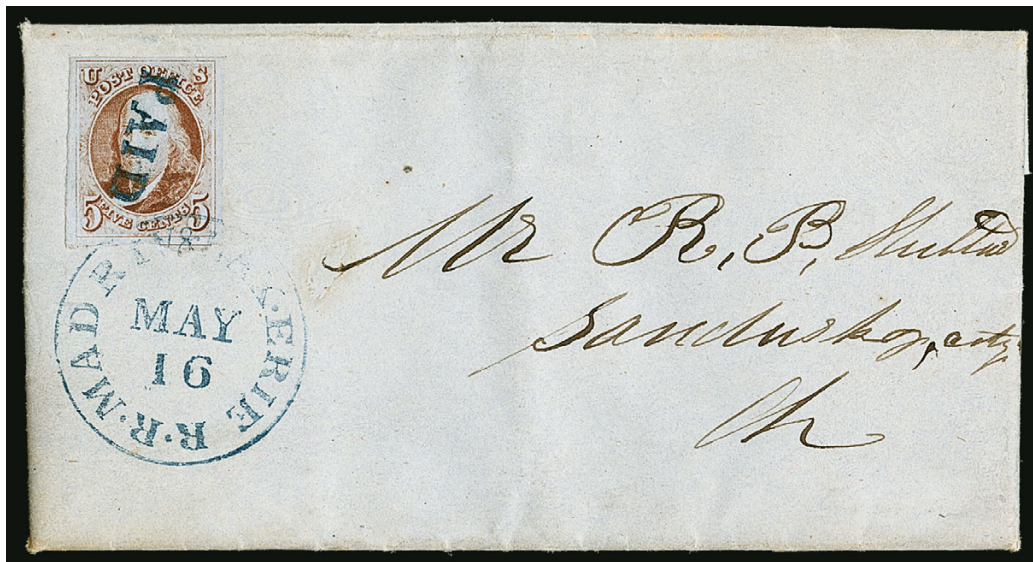 U S
POST OFFICE
PAID
5 FIVE CENTS 5
R.R. MAD RIVER & L. ERIE
MAY
16
Mr R, B, Hubbard
Sandusky, city
Oh